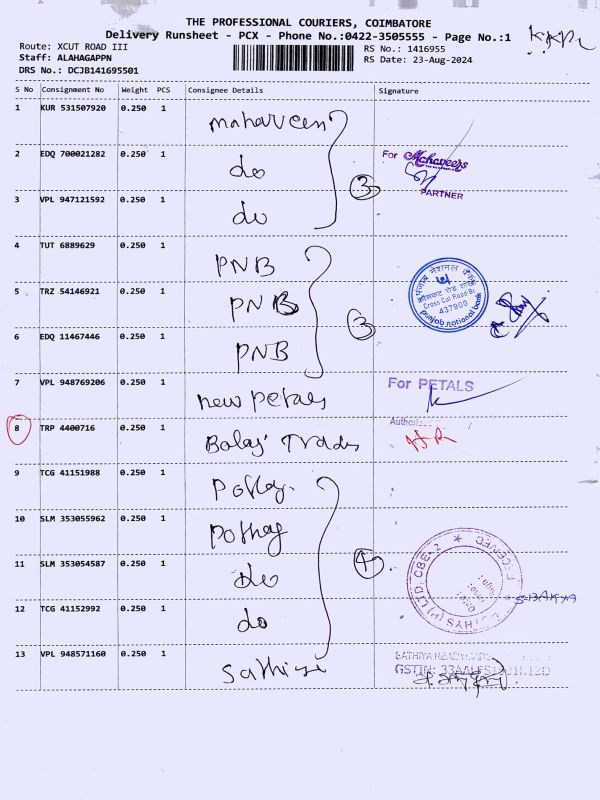 THE PROFESSIONAL COURIERS, COIMBATORE
Delivery Runsheet - PCX - Phone No.:0422-3505555 - Page No.:1
Route: XCUT ROAD III
RS No.: 1416955
Staff: ALAHAGAPPN
RS Date: 23-Aug-2024
DRS No.: DCJB141695501
S No Consignment No Weight PCS Consignee Details Signature
1 KUR 531507920 0.250 1 mahaveen
2 EDQ 700021282 0.250 1 do For Mahaveers
PARTNER
3
3 VPL 947121592 0.250 1 do
4 TUT 6889629 0.250 1 PNB
5 TRZ 54146921 0.250 1 PNB
पंजाब नैशनल बैंक
Cross Cut Road Br.
437900
punjab national bank
3
6 EDQ 11467446 0.250 1 PNB
7 VPL 948769206 0.250 1 new petals For PETALS
8 TRP 4400716 0.250 1 Balaj' Trades
9 TCG 41151988 0.250 1
10 SLM 353055962 0.250 1 pothey
11 SLM 353054587 0.250 1 do
4
RECEIVED
(P) LTD, CBE-2
12 TCG 41152992 0.250 1 do
13 VPL 948571160 0.250 1
SATHIYA READYMADE